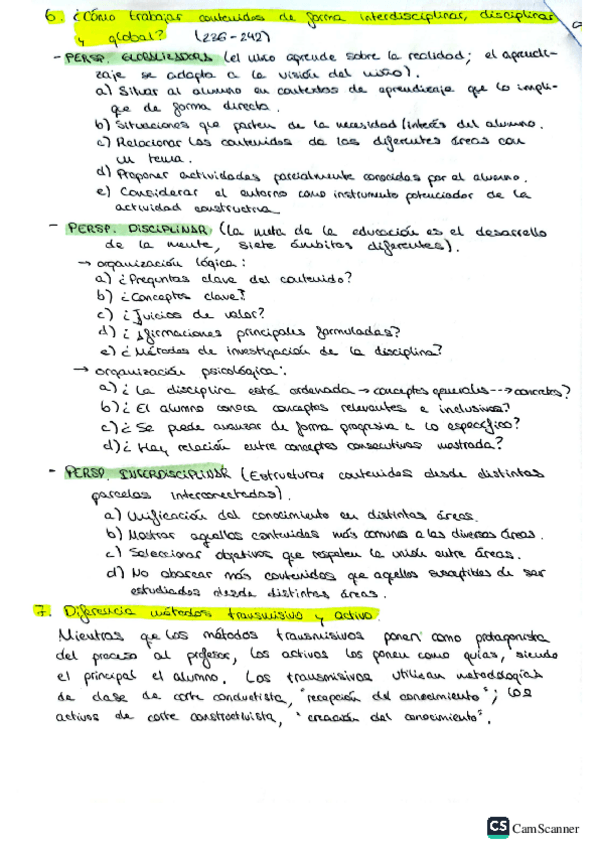 6. ¿Cómo trabajar contenidos de forma interdisciplinar, disciplinar
y global? (236-242)
- PERSP. GLOBALIZADORA (el niño aprende sobre la realidad; el aprendi-
zaje se adapta a la visión del niño).
a) Situar al alumno en contextos de aprendizaje que lo impli-
que de forma directa.
b) Situaciones que parten de la necesidad/interés del alumno.
c) Relacionar los contenidos de las diferentes áreas con
un tema.
d) Proponer actividades parcialmente conocidas por el alumno.
e) Considerar el entorno como instrumento potenciador de la
actividad constructiva
- PERSP. DISCIPLINAR (la meta de la educación es el desarrollo
de la mente, siete ámbitos diferentes).
→ organización lógica:
a) ¿Preguntas clave del contenido?
b) ¿Conceptos clave?
c) ¿Juicios de valor?
d) ¿Afirmaciones principales formuladas?
e) ¿Métodos de investigación de la disciplina?
→ organización psicológica:
a) ¿La disciplina está ordenada → conceptos generales --> concretos?
b) ¿El alumno conoce conceptos relevantes e inclusivos?
c) ¿Se puede avanzar de forma progresiva a lo específico?
d) ¿Hay relación entre conceptos consecutivos mostrada?
- PERSP. INTERDISCIPLINAR (Estructurar contenidos desde distintas
parcelas interconectadas).
a) Unificación del conocimiento en distintas áreas.
b) Mostrar aquellos contenidos más comunes a las diversas áreas.
c) Seleccionar objetivos que respeten la unión entre áreas.
d) No abarcar más contenidos que aquellos susceptibles de ser
estudiados desde distintas áreas.
7. Diferencia métodos transmisivo y activo.
Mientras que los métodos transmisivos ponen como protagonista
del proceso al profesor, los activos los ponen como guías, siendo
el principal el alumno. Los transmisivos utilizan metodologías
de clase de corte conductista, "recepción del conocimiento"; los
activos de corte constructivista, "creación del conocimiento".
CS CamScanner